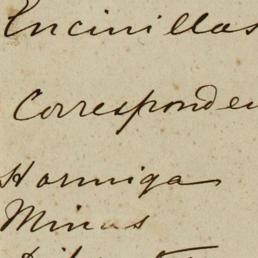 Encinillas
Corresponden
Hormiga
Minas